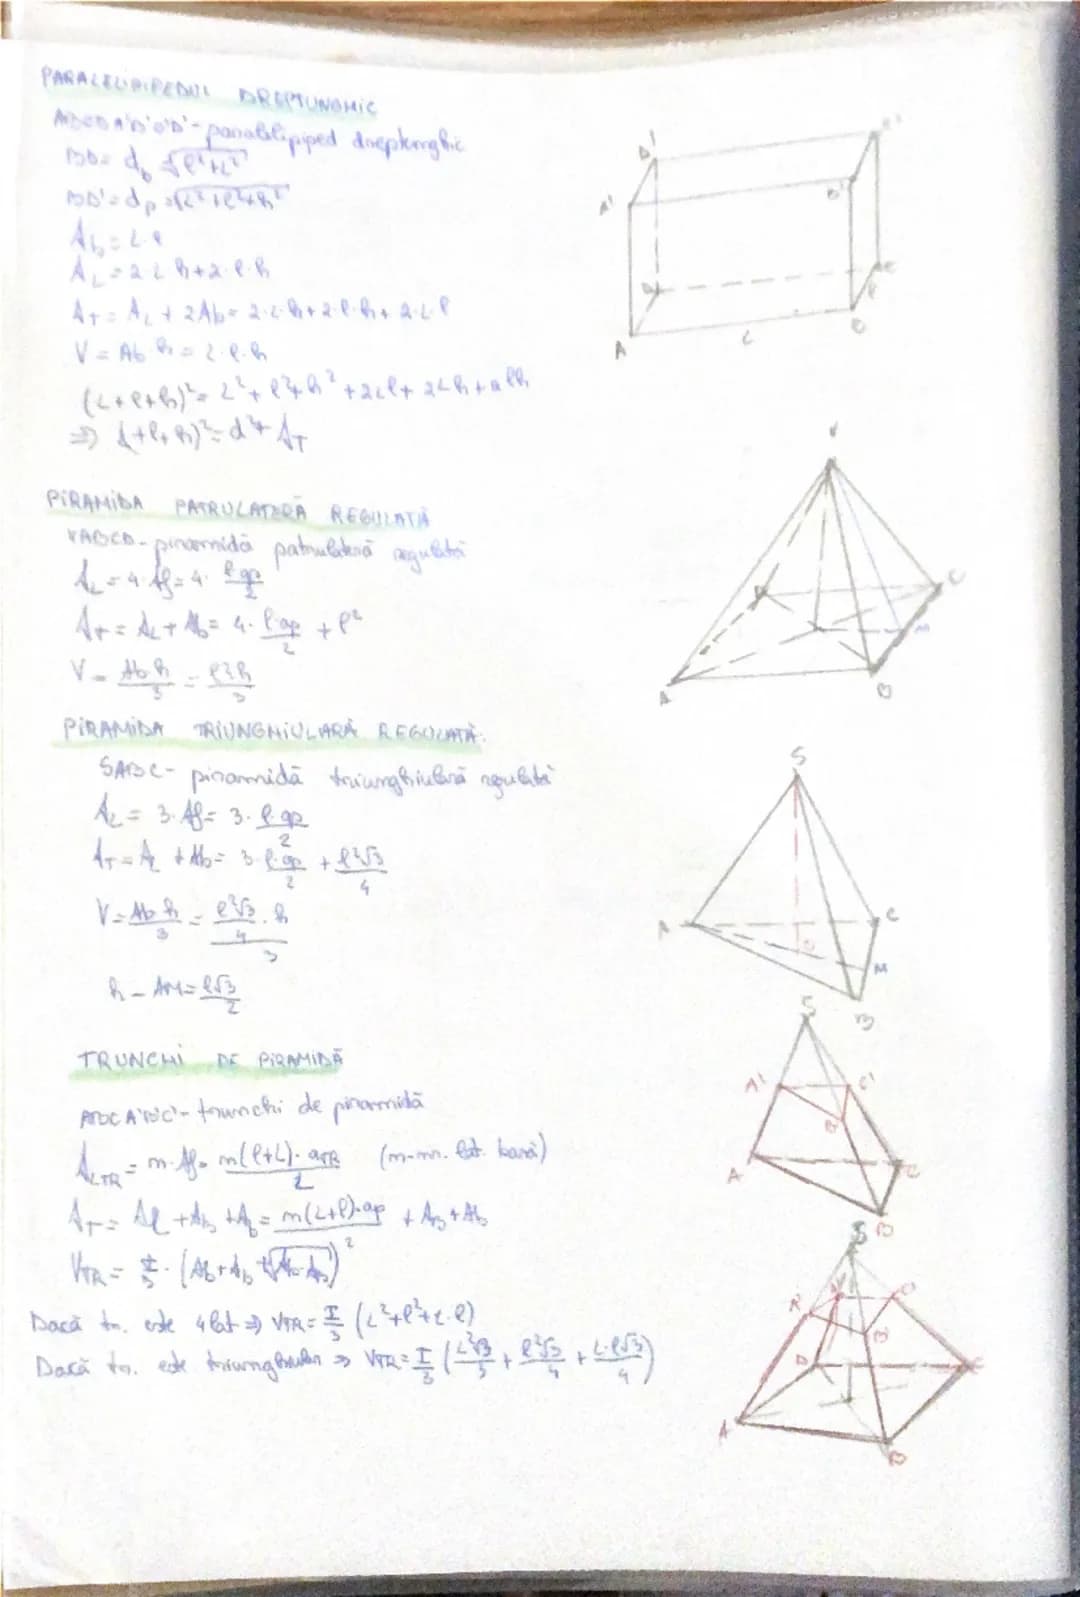 PARALELIPIPEDUL DREPTUNGHIC
ABCDA'B'C'D' - paralelipiped dreptunghic
BD = d_b √(l²+L²)
BD' = d_p = √(L²+l²+h²)
A_b = L·l
A_L = 2·L·h+2·l·h
A_T = A_L + 2Ab = 2·L·h+2·l·h+2·L·l
V = Ab·h = L·l·h
(L+l+h)² = L²+l²+h²+2Ll+2Lh+2lh
⇒ (L+l+h)² = d²+A_T
D'
C'
A'
B'
D
C
l
A
L
B
PIRAMIDA PATRULATERĂ REGULATĂ
VABCD - piramidă patrulateră regulată
A_L = 4·Af = 4·l·ap/2
A_T = A_L + Ab = 4·l·ap/2 + l²
V = Ab·h/3 = l²h/3
V
D
C
M
A
B
PIRAMIDA TRIUNGHIULARĂ REGULATĂ.
SABC - piramidă triunghiulară regulată
A_L = 3·Af = 3·l·ap/2
A_T = A_L + Ab = 3·l·ap/2 + l²√3/4
V = Ab·h/3 = l²√3/4·h/3
h - AM = l√3/2
S
A
C
O
M
B
TRUNCHI DE PIRAMIDĂ
ABCA'B'C' - trunchi de piramidă
A_LTR = m·Af = m(l+L)·a_TR/2 (m-nr. lat. bază)
A_T = Al + A_b + A_b = m(L+l)·ap/2 + A_b + Ab
V_TR = I/3·(Ab+A_b+√(A_b·A_b))²
Dacă tr. este 4lat ⇒ V_TR = I/3 (L²+l²+L·l)
Dacă tr. este triunghiular ⇒ V_TR = I/3 (L²√3/3 + l²√3/4 + L·l√3/4)
S
A'
C'
B'
A
C
B
S
A'
D'
C'
B'
D
C
A
B